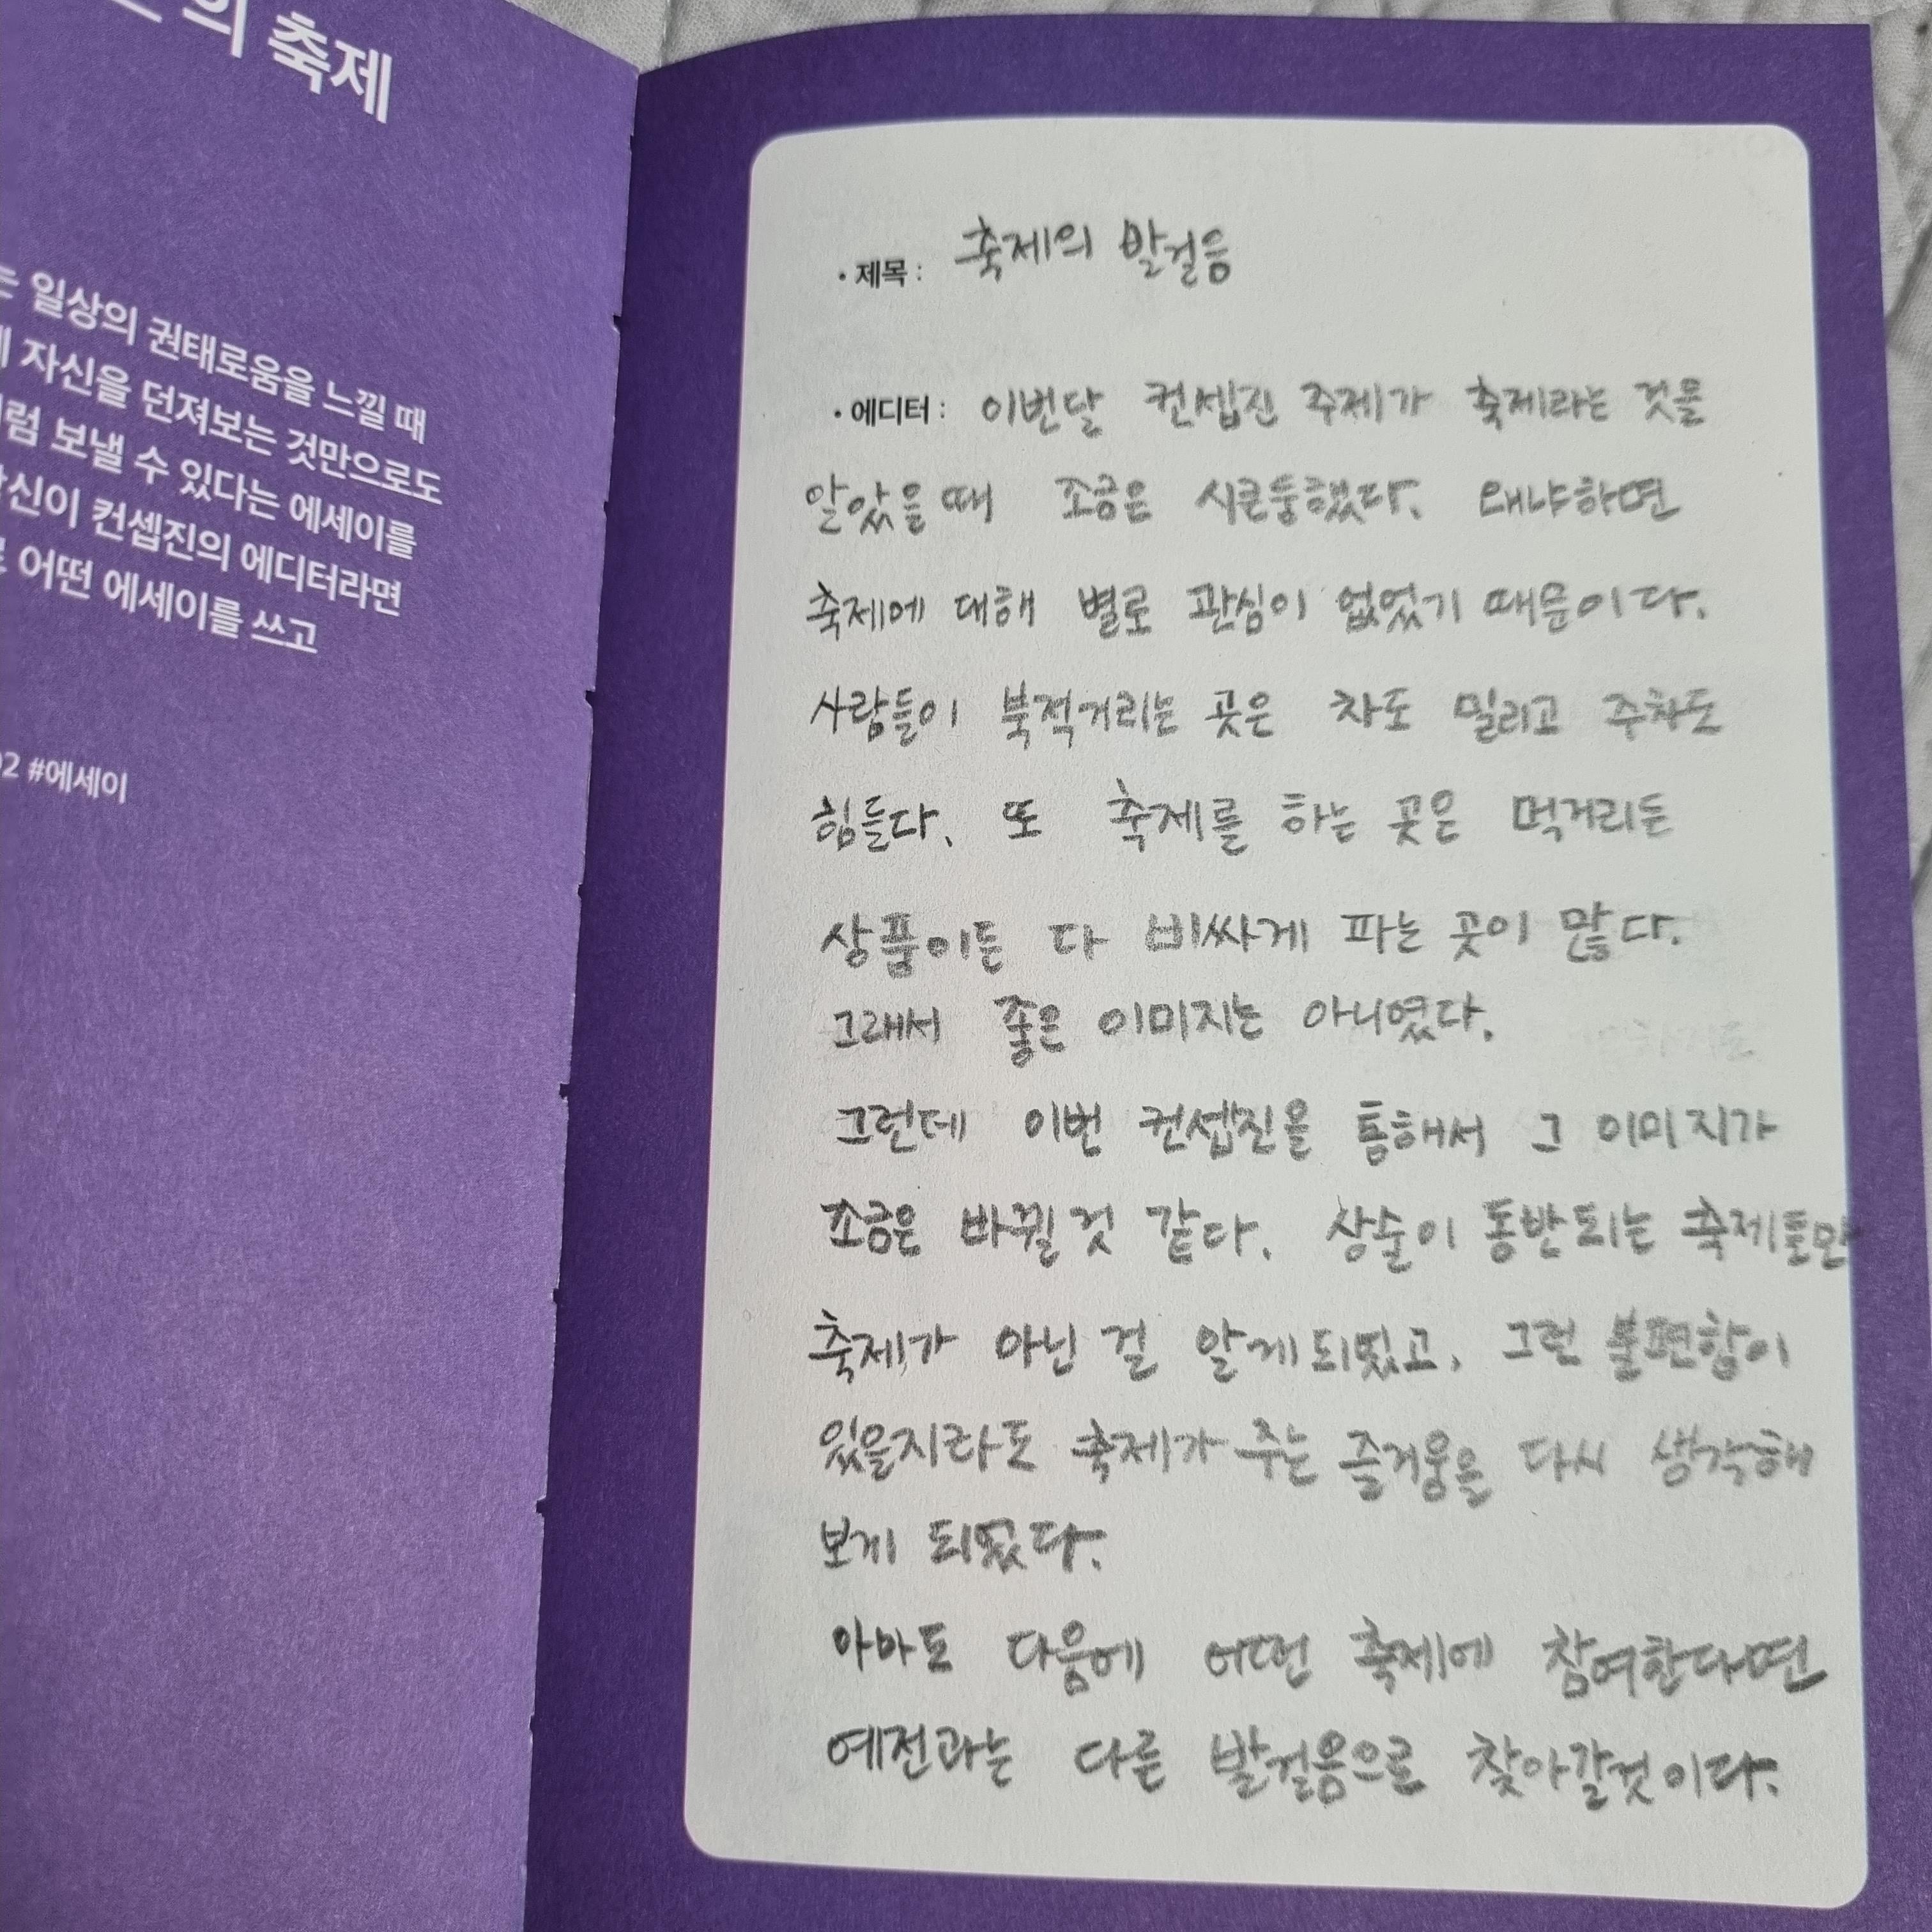 의 축제
는 일상의 권태로움을 느낄 때
자신을 던져보는 것만으로도
럼 보낼 수 있다는 에세이를
당신이 컨셉진의 에디터라면
어떤 에세이를 쓰고
02 #에세이
• 제목 : 축제의 발걸음
• 에디터 : 이번달 컨셉진 주제가 축제라는 것을
알았을 때 조금은 시큰둥했다. 왜냐하면
축제에 대해 별로 관심이 없었기 때문이다.
사람들이 북적거리는 곳은 차도 밀리고 주차도
힘들다. 또 축제를 하는 곳은 먹거리든
상품이든 다 비싸게 파는 곳이 많다.
그래서 좋은 이미지는 아니였다.
그런데 이번 컨셉진을 통해서 그 이미지가
조금은 바뀔 것 같다. 상술이 동반되는 축제들만
축제가 아닌 걸 알게 되었고, 그런 불편함이
있을지라도 축제가 주는 즐거움을 다시 생각해
보게 되었다.
아마도 다음에 어떤 축제에 참여한다면
예전과는 다른 발걸음으로 찾아갈것이다.